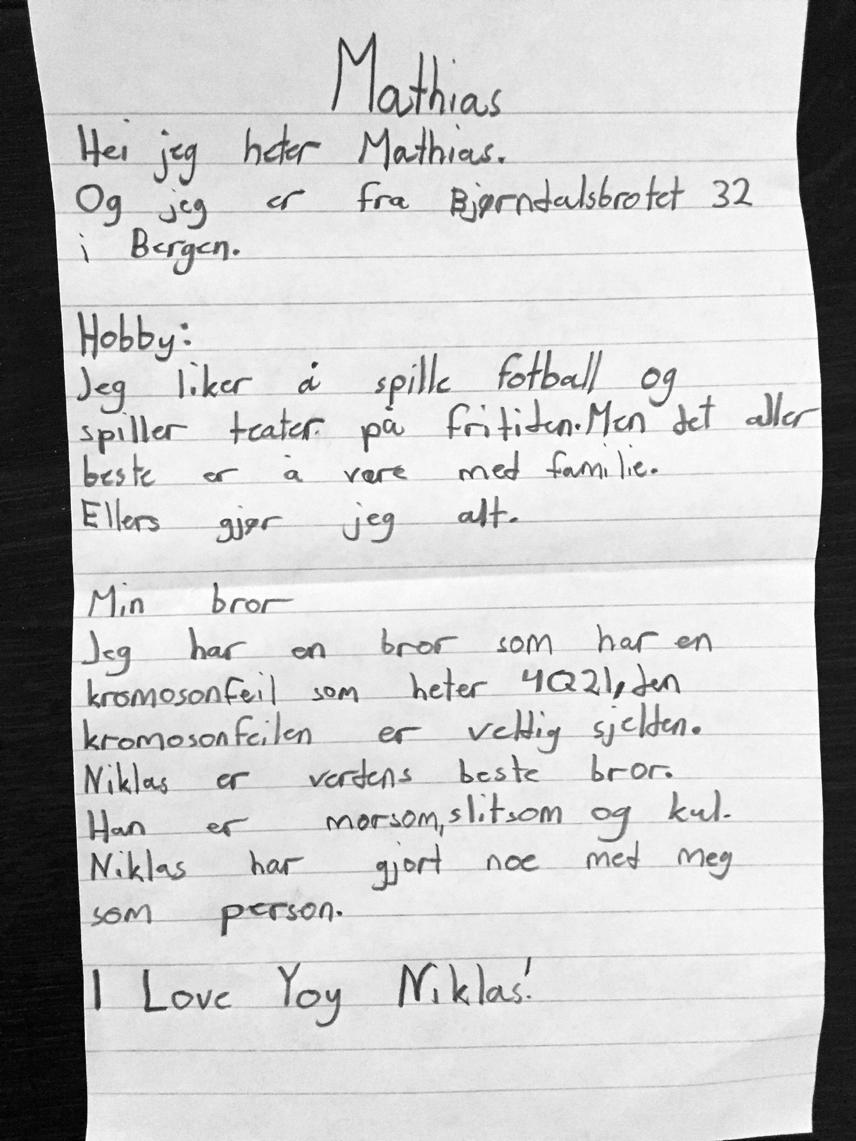 Mathias
Hei jeg heter Mathias.
Og jeg er fra Bjørndalsbrotet 32
i Bergen.
Hobby:
Jeg liker å spille fotball og
spiller teater på fritiden. Men det aller
beste er å være med familie.
Ellers gjør jeg alt.
Min bror
Jeg har en bror som har en
kromosonfeil som heter 4Q21, den
kromosonfeilen er veldig sjelden.
Niklas er verdens beste bror.
Han er morsom, slitsom og kul.
Niklas har gjort noe med meg
som person.
I Love Yoy Niklas!